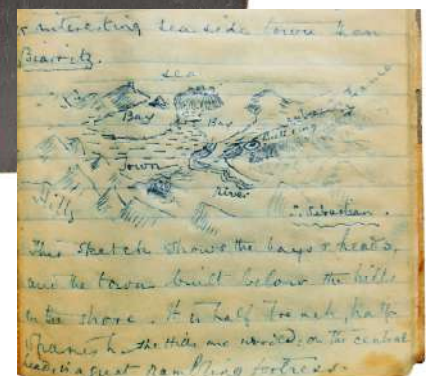 interesting sea side town than
Biarritz.
sea
Bay
Bay
France
Town
river
Hills
S. Sebastian.
This sketch shows the bays & heads,
and the town built below the hills
on the shore. It is half French, half
Spanish. The Hills are wooded; on the central
head, is a great rambling fortress.